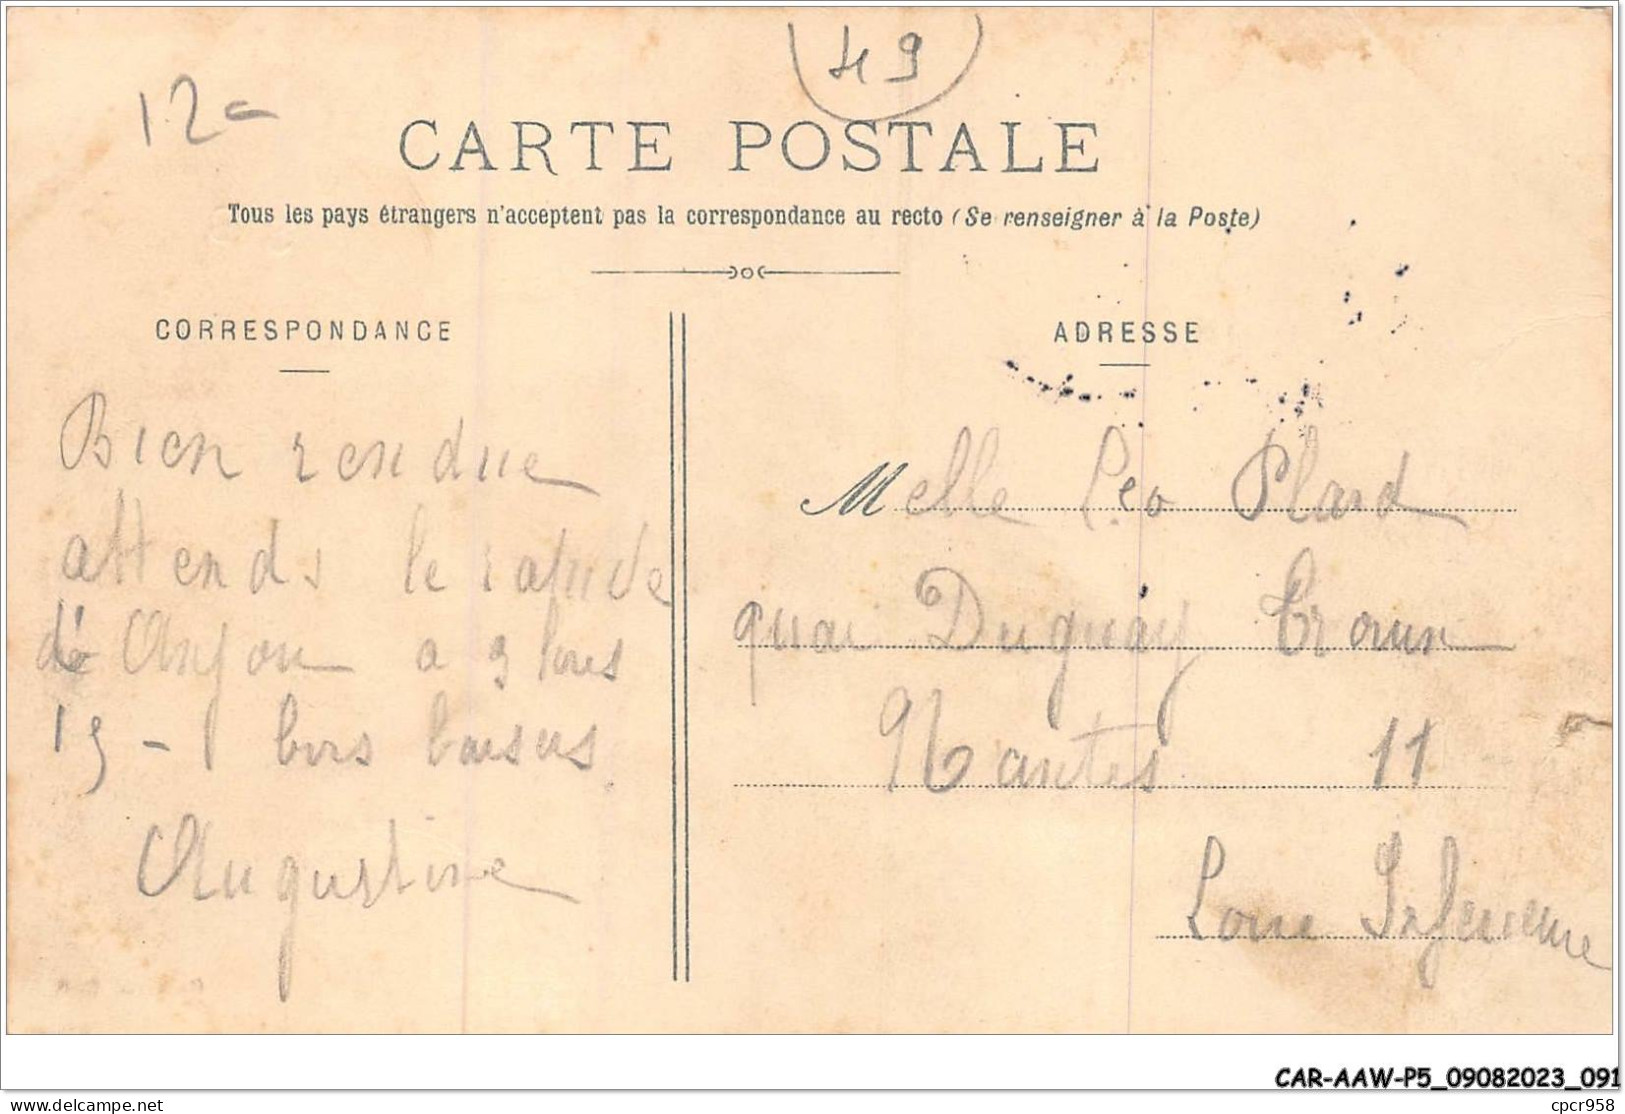 49
12
CARTE POSTALE
Tous les pays étrangers n'acceptent pas la correspondance au recto (Se renseigner à la Poste)
CORRESPONDANCE
ADRESSE
Bien rendue
attends le rapide
de Anjou a 3 hres
15 - bons baisers
Augustine
Melle Leo Plard
quai Duguay Trouin
Nantes 11
Loire Inferieure
CAR-AAW-P5_09082023_091
www.delcampe.net
cpcr958